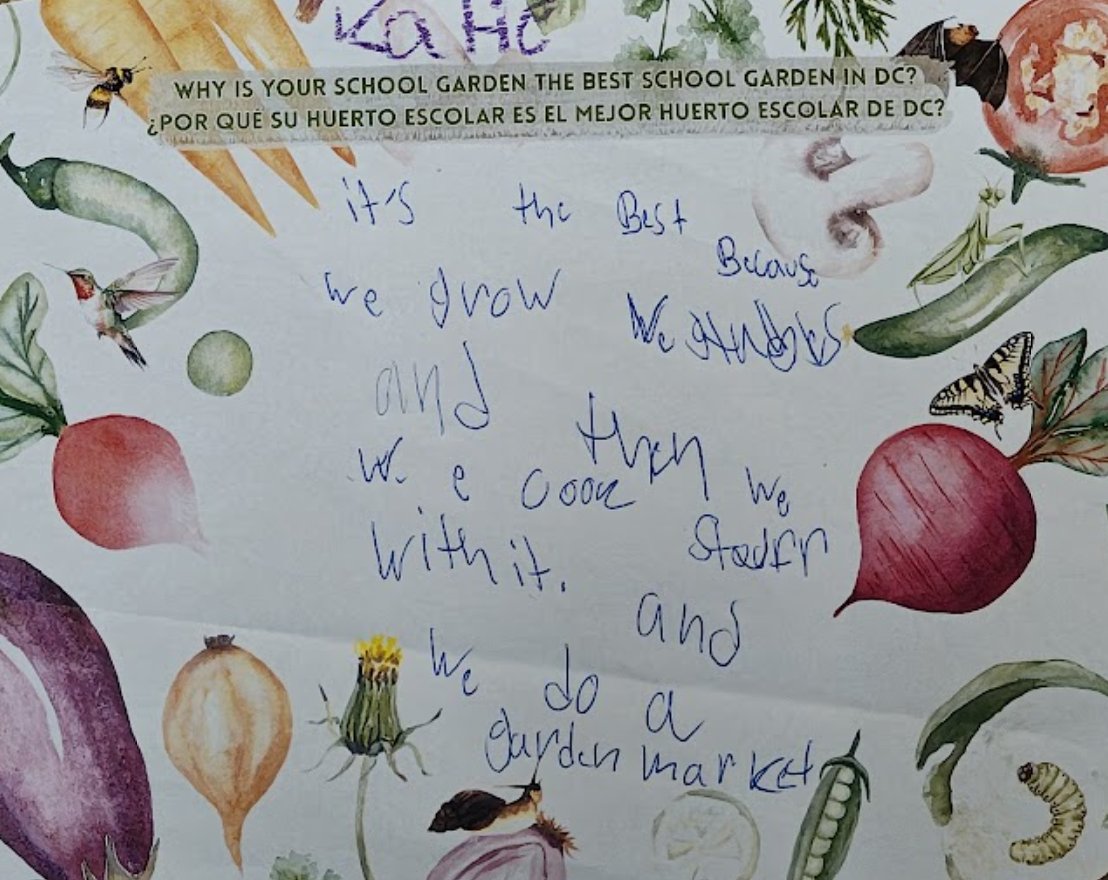 Katie
WHY IS YOUR SCHOOL GARDEN THE BEST SCHOOL GARDEN IN DC?
¿POR QUÉ SU HUERTO ESCOLAR ES EL MEJOR HUERTO ESCOLAR DE DC?
it's the Best
Because
we grow We
and
then
we cook we
with it.
and
we do a
garden market